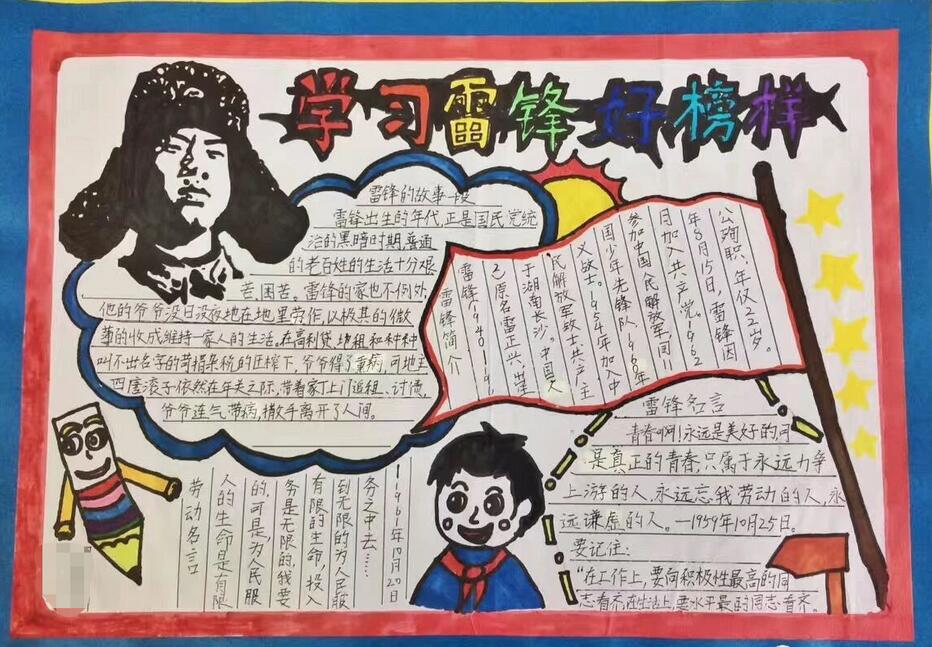 学习雷锋好榜样
雷锋的故事一段
雷锋出生的年代,正是国民党统
治的黑暗时期,普通
的老百姓的生活十分艰
苦、困苦。雷锋的家也不例外,
他的爷爷没日没夜地在地里劳作,以极其的微
薄的收成维持一家人的生活,在高利贷、地租和种种
叫不出名字的苛捐杂税的压榨下,爷爷得了重病,可地主
四虎滚子依然在年关之际,带着家丁上门追租、讨债,
爷爷连气带病,撒手离开了人间。
公殉职,年仅22岁。
年8月15日,雷锋因
月加入共产党。1962
参加中国人民解放军同11
国少年先锋队,1960年
义战士。1954年加入中
民解放军战士,共产主
于湖南长沙。中国人
2)原名雷正兴,出生
雷锋(1940-196
雷锋简介
雷锋名言
青春啊!永远是美好的,可
是真正的青春,只属于永远力争
上游的人,永远忘我劳动的人,永
远谦虚的人。一1959年10月25日。
要记住:
“在工作上,要向积极性最高的同
志看齐,在生活上,要水平最的同志看齐。
劳动名言
人的生命是有限
的,可是,为人民服
务是无限的,我要
有限的生命,投入
到无限的为人民服
务之中去……
——1961年10月20日